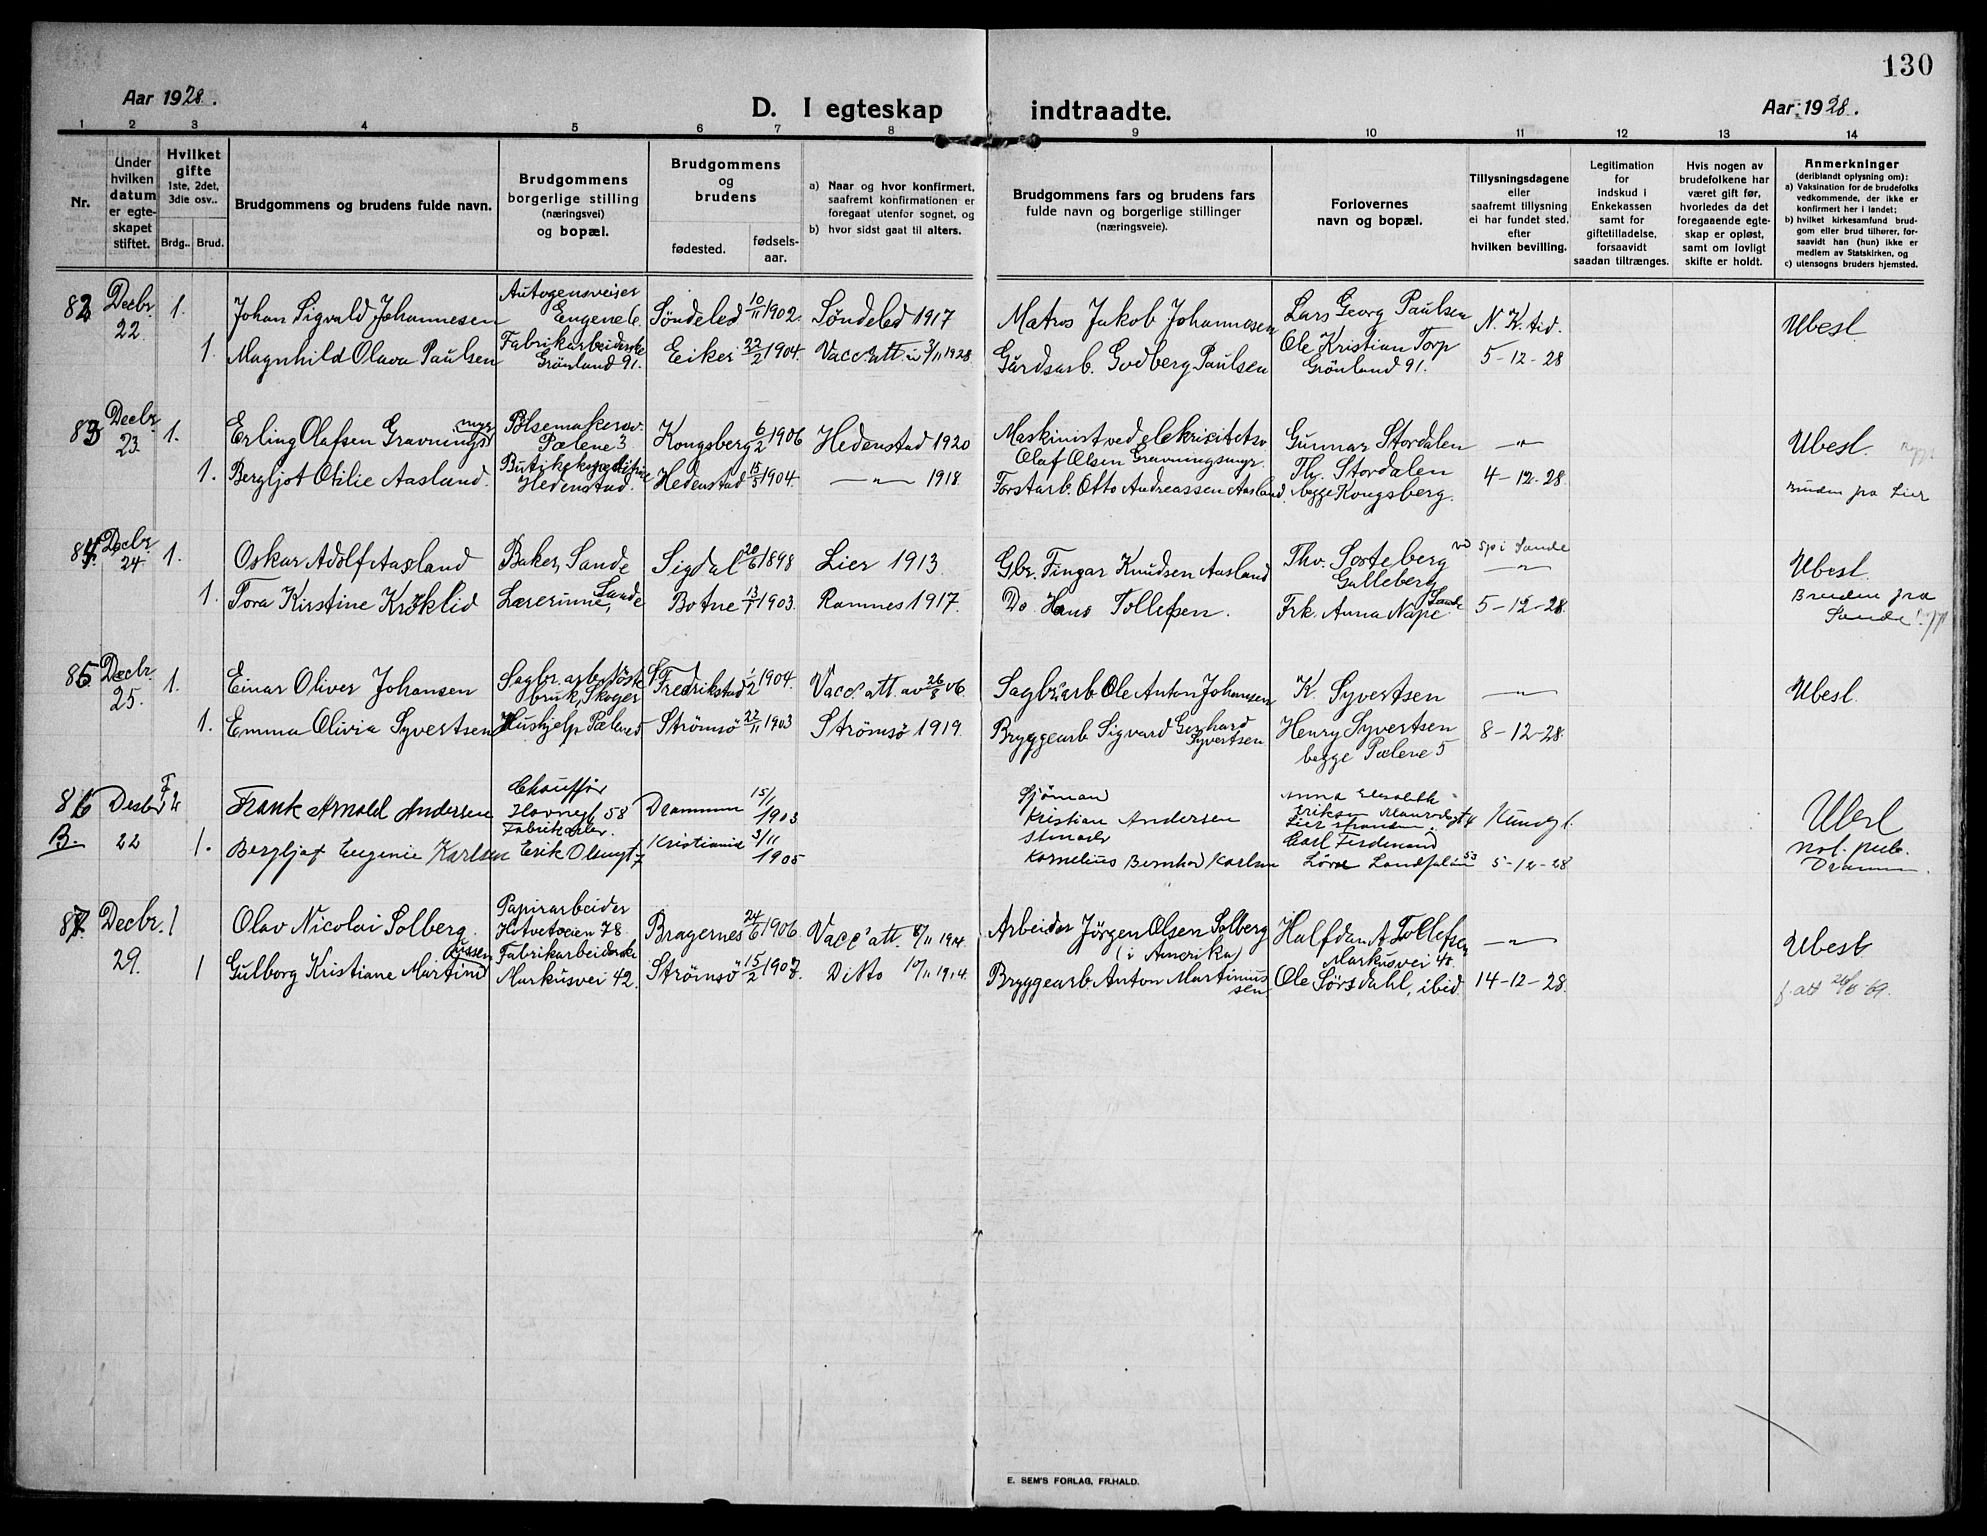 130
Aar 1928.
D. I egteskap indtraadte.
Aar 1928.
1 2 3 4 5 6 7 8 9 10 11 12 13 14
Nr.
Under hvilken datum er egteskapet stiftet.
Hvilket gifte 1ste, 2det, 3die osv..
Brdg.. Brud.
Brudgommens og brudens fulde navn.
Brudgommens borgerlige stilling (næringsvei) og bopæl.
Brudgommens og brudens
fødested. fødsels-aar.
a) Naar og hvor konfirmert, saafremt konfirmationen er foregaat utenfor sognet, og
b) hvor sidst gaat til alters.
Brudgommens fars og brudens fars fulde navn og borgerlige stillinger (næringsveie).
Forlovernes navn og bopæl.
Tillysningsdagene eller saafremt tillysning ei har fundet sted, efter hvilken bevilling.
Legitimation for indskud i Enkekassen samt for giftetilladelse, forsaavidt saadan tiltrænges.
Hvis nogen av brudefolkene har været gift før, hvorledes da det foregaaende egteskap er opløst, samt om lovlig skifte er holdt.
Anmerkninger (deriblandt oplysning om):
a) Vaksination for de brudefolks vedkommende, der ikke er konfirmert her i landet;
b) hvilket kirkesamfund brudgom eller brud tilhører, forsaavidt han (hun) ikke er medlem av Statskirken, og
c) utensogns bruders hjemsted.
82 Decbr. 22. 1. Johan Sigvald Johannesen Autogensveiser Engene 6. Søndeled 10/11 1902. Søndeled 1917 Matros Jakob Johannesen Lars Georg Paulsen N. K. tid. Ubesl.
1. Magnhild Olava Paulsen Fabrikarbeiderske Grønland 91. Eiker 22/2 1904. Vacc. att. 3/11 1928. Gårdsarb. Godberg Paulsen Ole Kristian Torp Grønland 91. 5-12-28
83 Decbr. 23. 1. Erling Olafsen Gravningsmyr Pølsemakersv. Pælene 3. Kongsberg 6/2 1906 Hedenstad 1920 Maskinist ved elekricitetsv. Olaf Olsen Gravningsmyr. Gunnar Stordalen —"— Ubesl.
1. Bergljot Otilie Aasland. Hedenstad. Hedenstad 15/5 1904. —"— 1918. Forstarb. Otto Andreassen Aasland. Th. Stordalen begge Kongsberg. 4-12-28. Bruden fra Lier
84. Decbr. 24 1. Oskar Adolf Aasland Baker, Sande Sigdal 20/6 1898 Lier 1913. Gbr. Fingar Knudsen Aasland Thv. Sorteberg Galleberg sp i Sande —"— Ubesl.
1. Tora Kirstine Krøklid Lærerinne, Sande Botne 13/1 1903. Ramnes 1917. Do Hans Tollefsen. Frk. Anna Nape Sande 5-12-28. Bruden fra Sande
85. Decbr. 25. 1. Einar Oliver Johansen Sagbr. arb. bruk, Skoger Fredrikstad 1/2 1904. Vacc. att. av 26/8 06. Sagbr. arb Ole Anton Johansen K. Syvertsen —"— Ubesl.
1. Emma Olivia Syvertsen Hushjelp Pælene 5 Strømsø 22/11 1903 Strømsø 1919. Bryggearb. Sigvard Gerhard Syvertsen Henry Syvertsen begge Pælene 5 8-12-28.
86 B. Desbr 22 Frank Arnold Andersen Chauffør Havnegt 58 Drammen 15/1 1903 Sjømann Kristian Andersen Anna Elisabeth Eriksen Ubesl
1. Bergljot Eugenie Karlsen Erik Olsengt 7 Kristiania 3/11 1905 Kornelius Bernhard Karlsen Carl Ferdinand 53 5-12-28 not. pub. Drammen.
87. Decbr. 29. 1 Olav Nicolai Solberg. Papirarbeider Hotvetveien 78. Bragernes 24/6 1906. Vacc. att. 8/11 1914. Arbeider Jörgen Olsen Solberg (i Amerika) Halfdan A Tollefsen Markusvei 40. —"— Ubesl.
1 Gulborg Kristiane Martiniussen Fabrikarbeiderske Markusvei 42. Strømsø 15/2 1907. Ditto 10/11 1914. Bryggearb Anton Martiniussen Ole Sørsdahl, ibid. 14-12-28. f. att 26/8-69.
E. SEM'S FORLAG, FR.HALD.